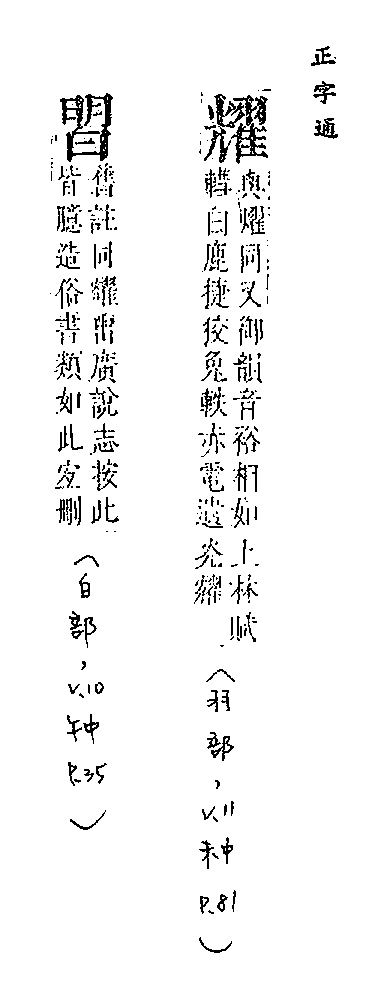 正字通
耀
與燿同又御韻音裕相如上林賦
轊白鹿捷狡兔軼赤電遺光耀
(羽部,v.11
未中
P.81)
舊註同耀出廣說志按此
皆臆造俗書類如此宜刪
(白部,v.10
午中
P.35)